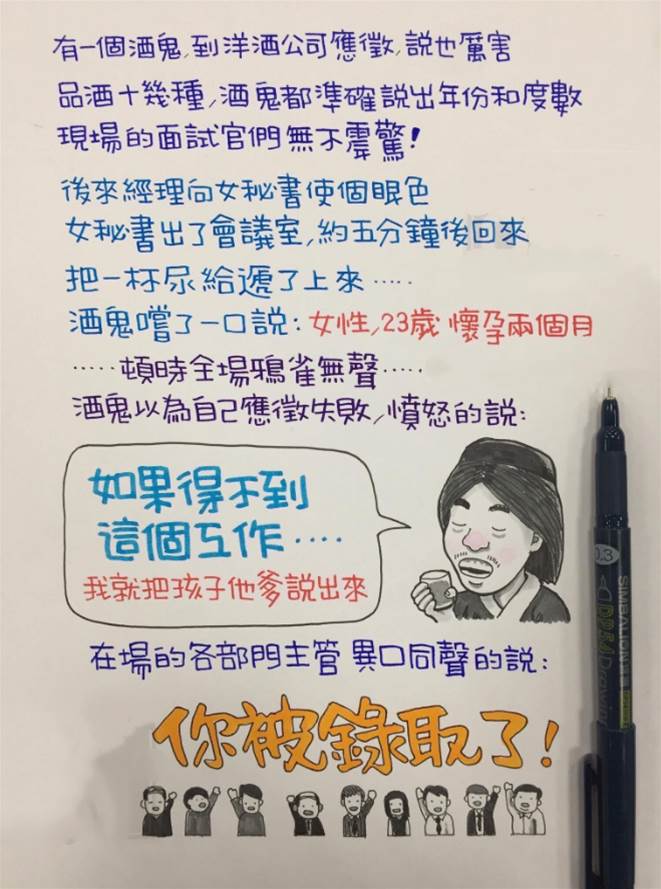 有一個酒鬼,到洋酒公司應徵,說也厲害
品酒十幾種,酒鬼都準確說出年份和度數
現場的面試官們無不震驚!
後來經理向女秘書使個眼色
女秘書出了會議室,約五分鐘後回來
把一杯尿給遞了上來.....
酒鬼嚐了一口說:女性,23歲 懷孕兩個月
.....頓時全場鴉雀無聲.....
酒鬼以為自己應徵失敗,憤怒的說:
如果得不到
這個工作....
我就把孩子他爹說出來
在場的各部門主管 異口同聲的說:
你被錄取了!
0.3
SIMBALION
Drawing